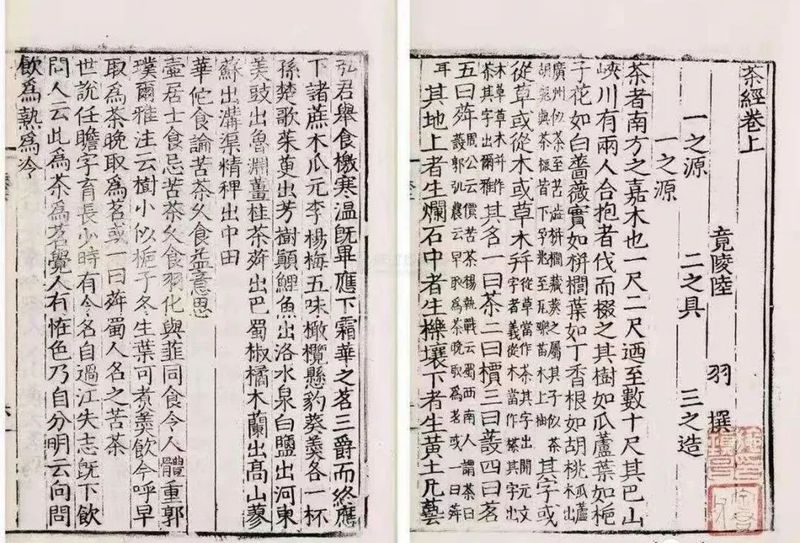 茶經卷上
竟陵陸 羽 撰
一之源 二之具 三之造
一之源
茶者南方之嘉木也一尺二尺迺至數十尺其巴山
峽川有兩人合抱者伐而掇之其樹如瓜蘆葉如梔
子花如白薔薇實如栟櫚葉如丁香根如胡桃瓜蘆木出
廣州似茶至苦澀栟櫚蒲葵之屬其子似茶胡桃與茶根皆下孕兆至瓦礫苗木上抽其字或
從草或從木或草木并從草當作茶其字出開元文字音義從木當作㮈其字出
本草草木并作荼其字出爾雅其名一曰茶二曰檟三曰蔎四曰茗
五曰荈周公云檟苦荼揚執戟云蜀西南人謂茶曰蔎郭弘農云早取為茶晚取為茗或一曰荈
耳其地上者生爛石中者生櫟壤下者生黃土凡藝
弘君舉食檄寒溫旣畢應下霜華之茗三爵而終應
下諸蔗木瓜元李楊梅五味橄欖懸豹葵羹各一杯
孫楚歌茱萸出芳樹顛鯉魚出洛水泉白鹽出河東
美豉出魯淵薑桂茶荈出巴蜀椒橘木蘭出高山蓼
蘇出溝渠精稗出中田
華佗食論苦茶久食益意思
壺居士食忌苦茶久食羽化與韮同食令人體重郭
璞爾雅注云樹小似梔子冬生葉可煮羹飲今呼早
取為茶晚取為茗或一曰荈蜀人名之苦茶
世說任瞻字育長少時有令名自過江失志旣下飲
問人云此為茶為茗覺人有怪色乃自分明云向問
飲為熱為冷